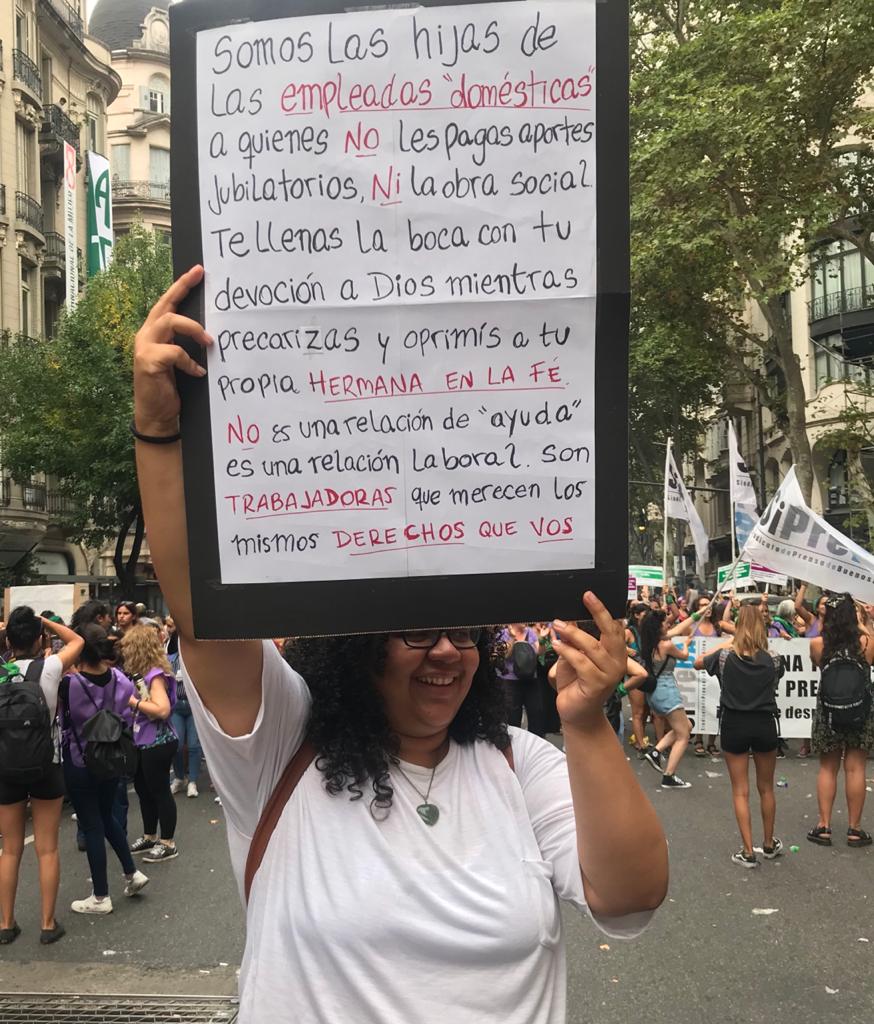 Somos Las hijas de
Las empleadas "domésticas"
a quienes NO les pagas aportes
Jubilatorios, Ni la obra social.
Te llenas la boca con tu
devoción a Dios mientras
precarizas y oprimís a tu
propia HERMANA EN LA FÉ.
NO es una relación de "ayuda"
es una relación Laboral. Son
TRABAJADORAS que merecen los
mismos DERECHOS QUE VOS
A
SiPre
Sindicato de Prensa de Buenos
NA
DE PRE